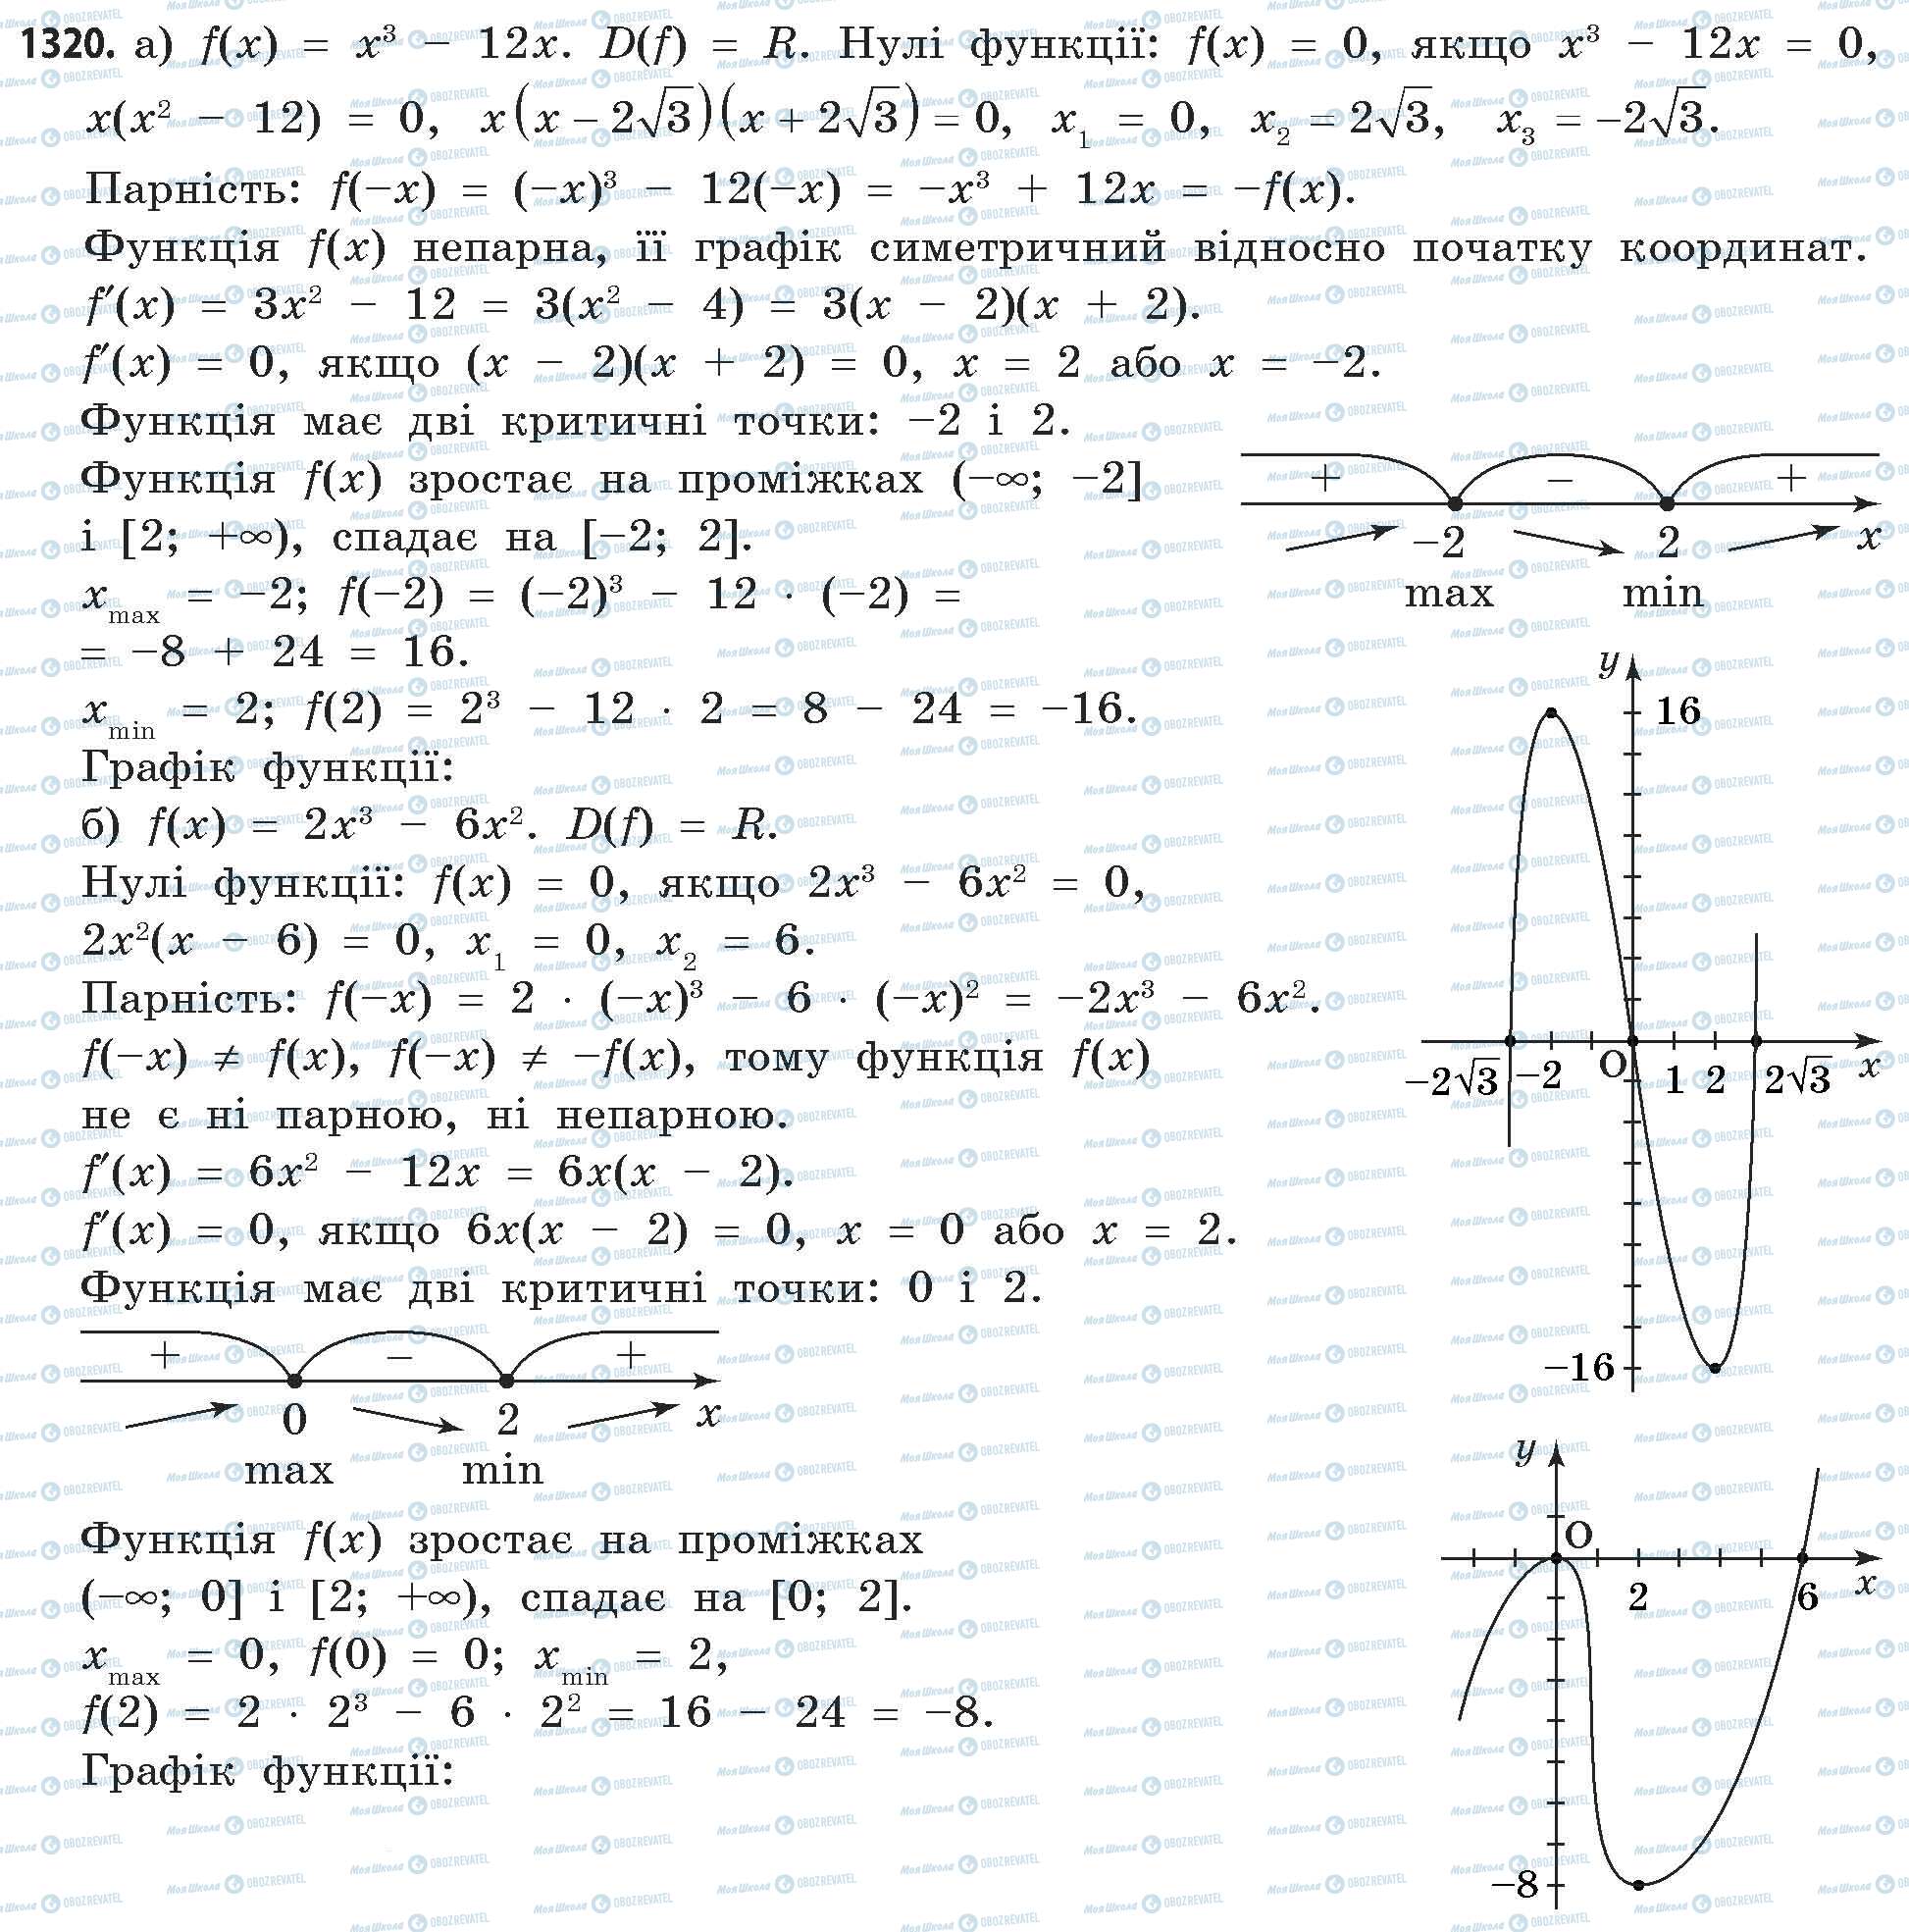 1320. а) f(x) = x³ − 12x. D(f) = R. Нулі функції: f(x) = 0, якщо x³ − 12x = 0,
x(x² − 12) = 0, x(x − 2√3)(x + 2√3) = 0, x₁ = 0, x₂ = 2√3, x₃ = −2√3.
Парність: f(−x) = (−x)³ − 12(−x) = −x³ + 12x = −f(x).
Функція f(x) непарна, її графік симетричний відносно початку координат.
f′(x) = 3x² − 12 = 3(x² − 4) = 3(x − 2)(x + 2).
f′(x) = 0, якщо (x − 2)(x + 2) = 0, x = 2 або x = −2.
Функція має дві критичні точки: −2 і 2.
Функція f(x) зростає на проміжках (−∞; −2]
і [2; +∞), спадає на [−2; 2].
+ − +
−2 2 x
max min
x_max = −2; f(−2) = (−2)³ − 12 · (−2) =
= −8 + 24 = 16.
x_min = 2; f(2) = 2³ − 12 · 2 = 8 − 24 = −16.
Графік функції:
y
16
−2√3 −2 O 1 2 2√3 x
−16
б) f(x) = 2x³ − 6x². D(f) = R.
Нулі функції: f(x) = 0, якщо 2x³ − 6x² = 0,
2x²(x − 6) = 0, x₁ = 0, x₂ = 6.
Парність: f(−x) = 2 · (−x)³ − 6 · (−x)² = −2x³ − 6x².
f(−x) ≠ f(x), f(−x) ≠ −f(x), тому функція f(x)
не є ні парною, ні непарною.
f′(x) = 6x² − 12x = 6x(x − 2).
f′(x) = 0, якщо 6x(x − 2) = 0, x = 0 або x = 2.
Функція має дві критичні точки: 0 і 2.
+ − +
0 2 x
max min
Функція f(x) зростає на проміжках
(−∞; 0] і [2; +∞), спадає на [0; 2].
x_max = 0, f(0) = 0; x_min = 2,
f(2) = 2 · 2³ − 6 · 2² = 16 − 24 = −8.
Графік функції:
y
O
2 6 x
−8
Моя Школа OBOZREVATEL